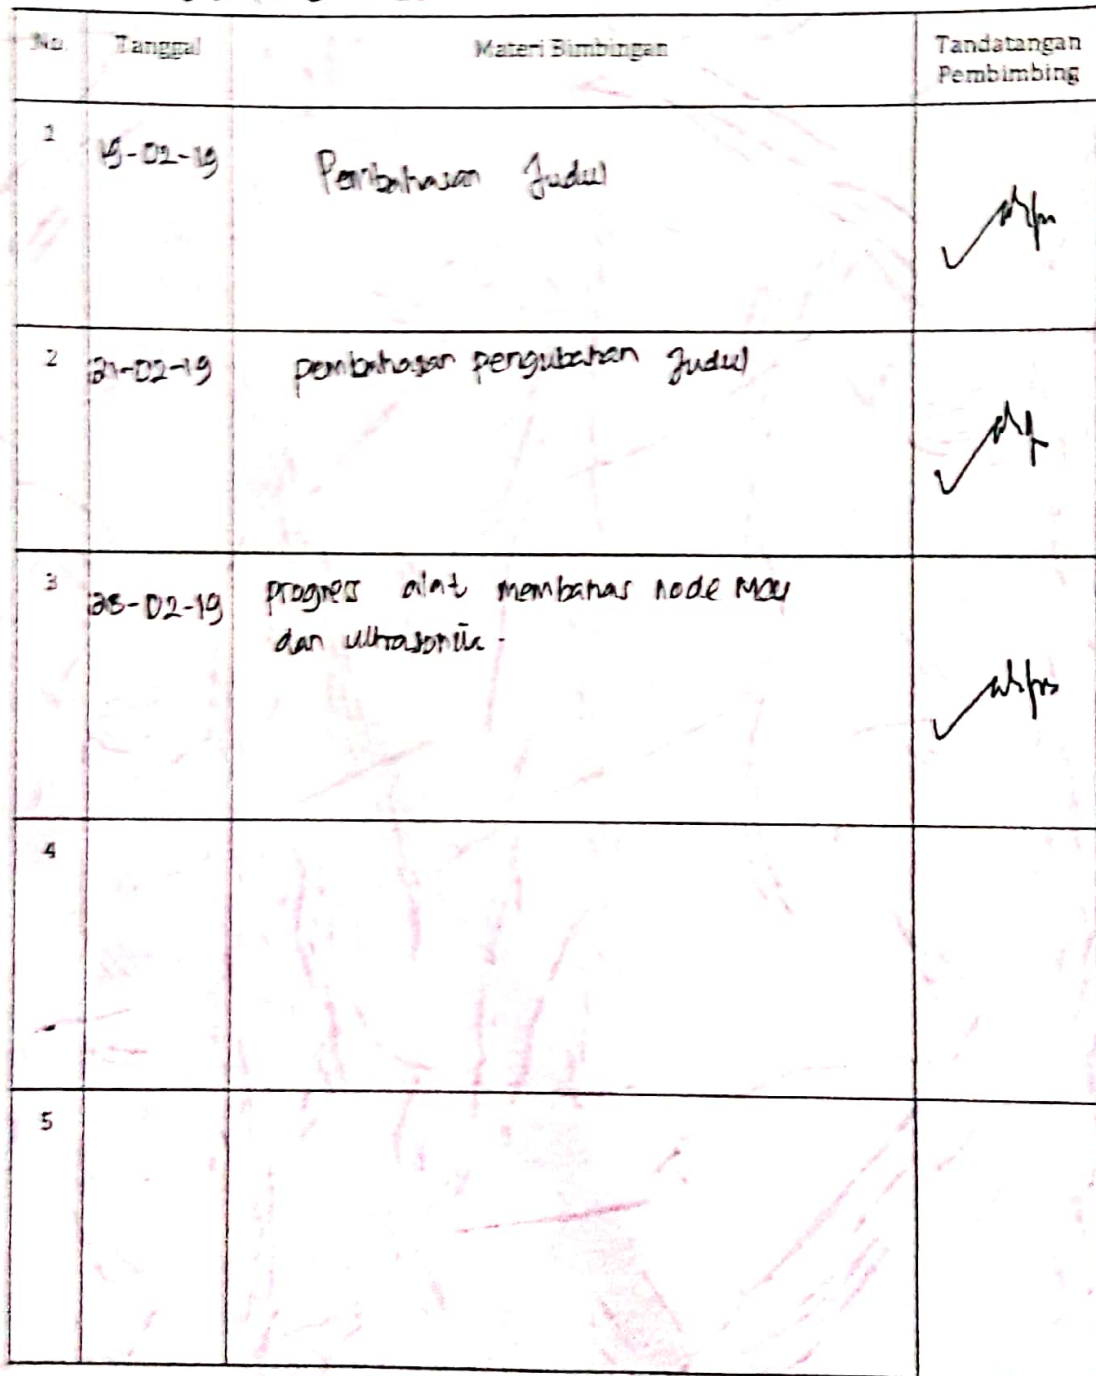 No. Tanggal Materi Bimbingan Tandatangan
Pembimbing
1 19-02-19 Pembahasan Judul
2 21-02-19 pembahasan pengubahan Judul
3 28-02-19 progress alat membahas node MCU
dan ultrasonik.
4
5